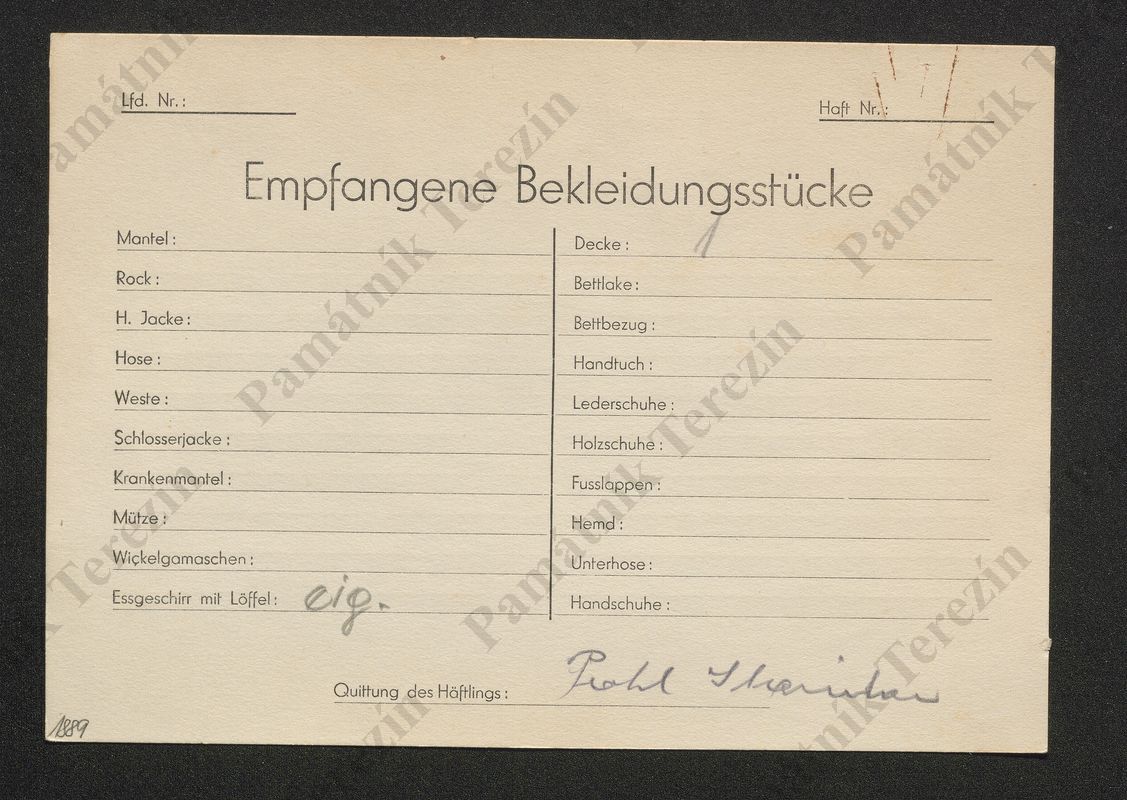 Lfd. Nr.:
Haft Nr.:
Empfangene Bekleidungsstücke
Mantel:
Rock:
H. Jacke:
Hose:
Weste:
Schlosserjacke:
Krankenmantel:
Mütze:
Wickelgamaschen:
Essgeschirr mit Löffel: eig.
Decke: 1
Bettlake:
Bettbezug:
Handtuch:
Lederschuhe:
Holzschuhe:
Fusslappen:
Hemd:
Unterhose:
Handschuhe:
Quittung des Häftlings:
1889
Památník Terezín